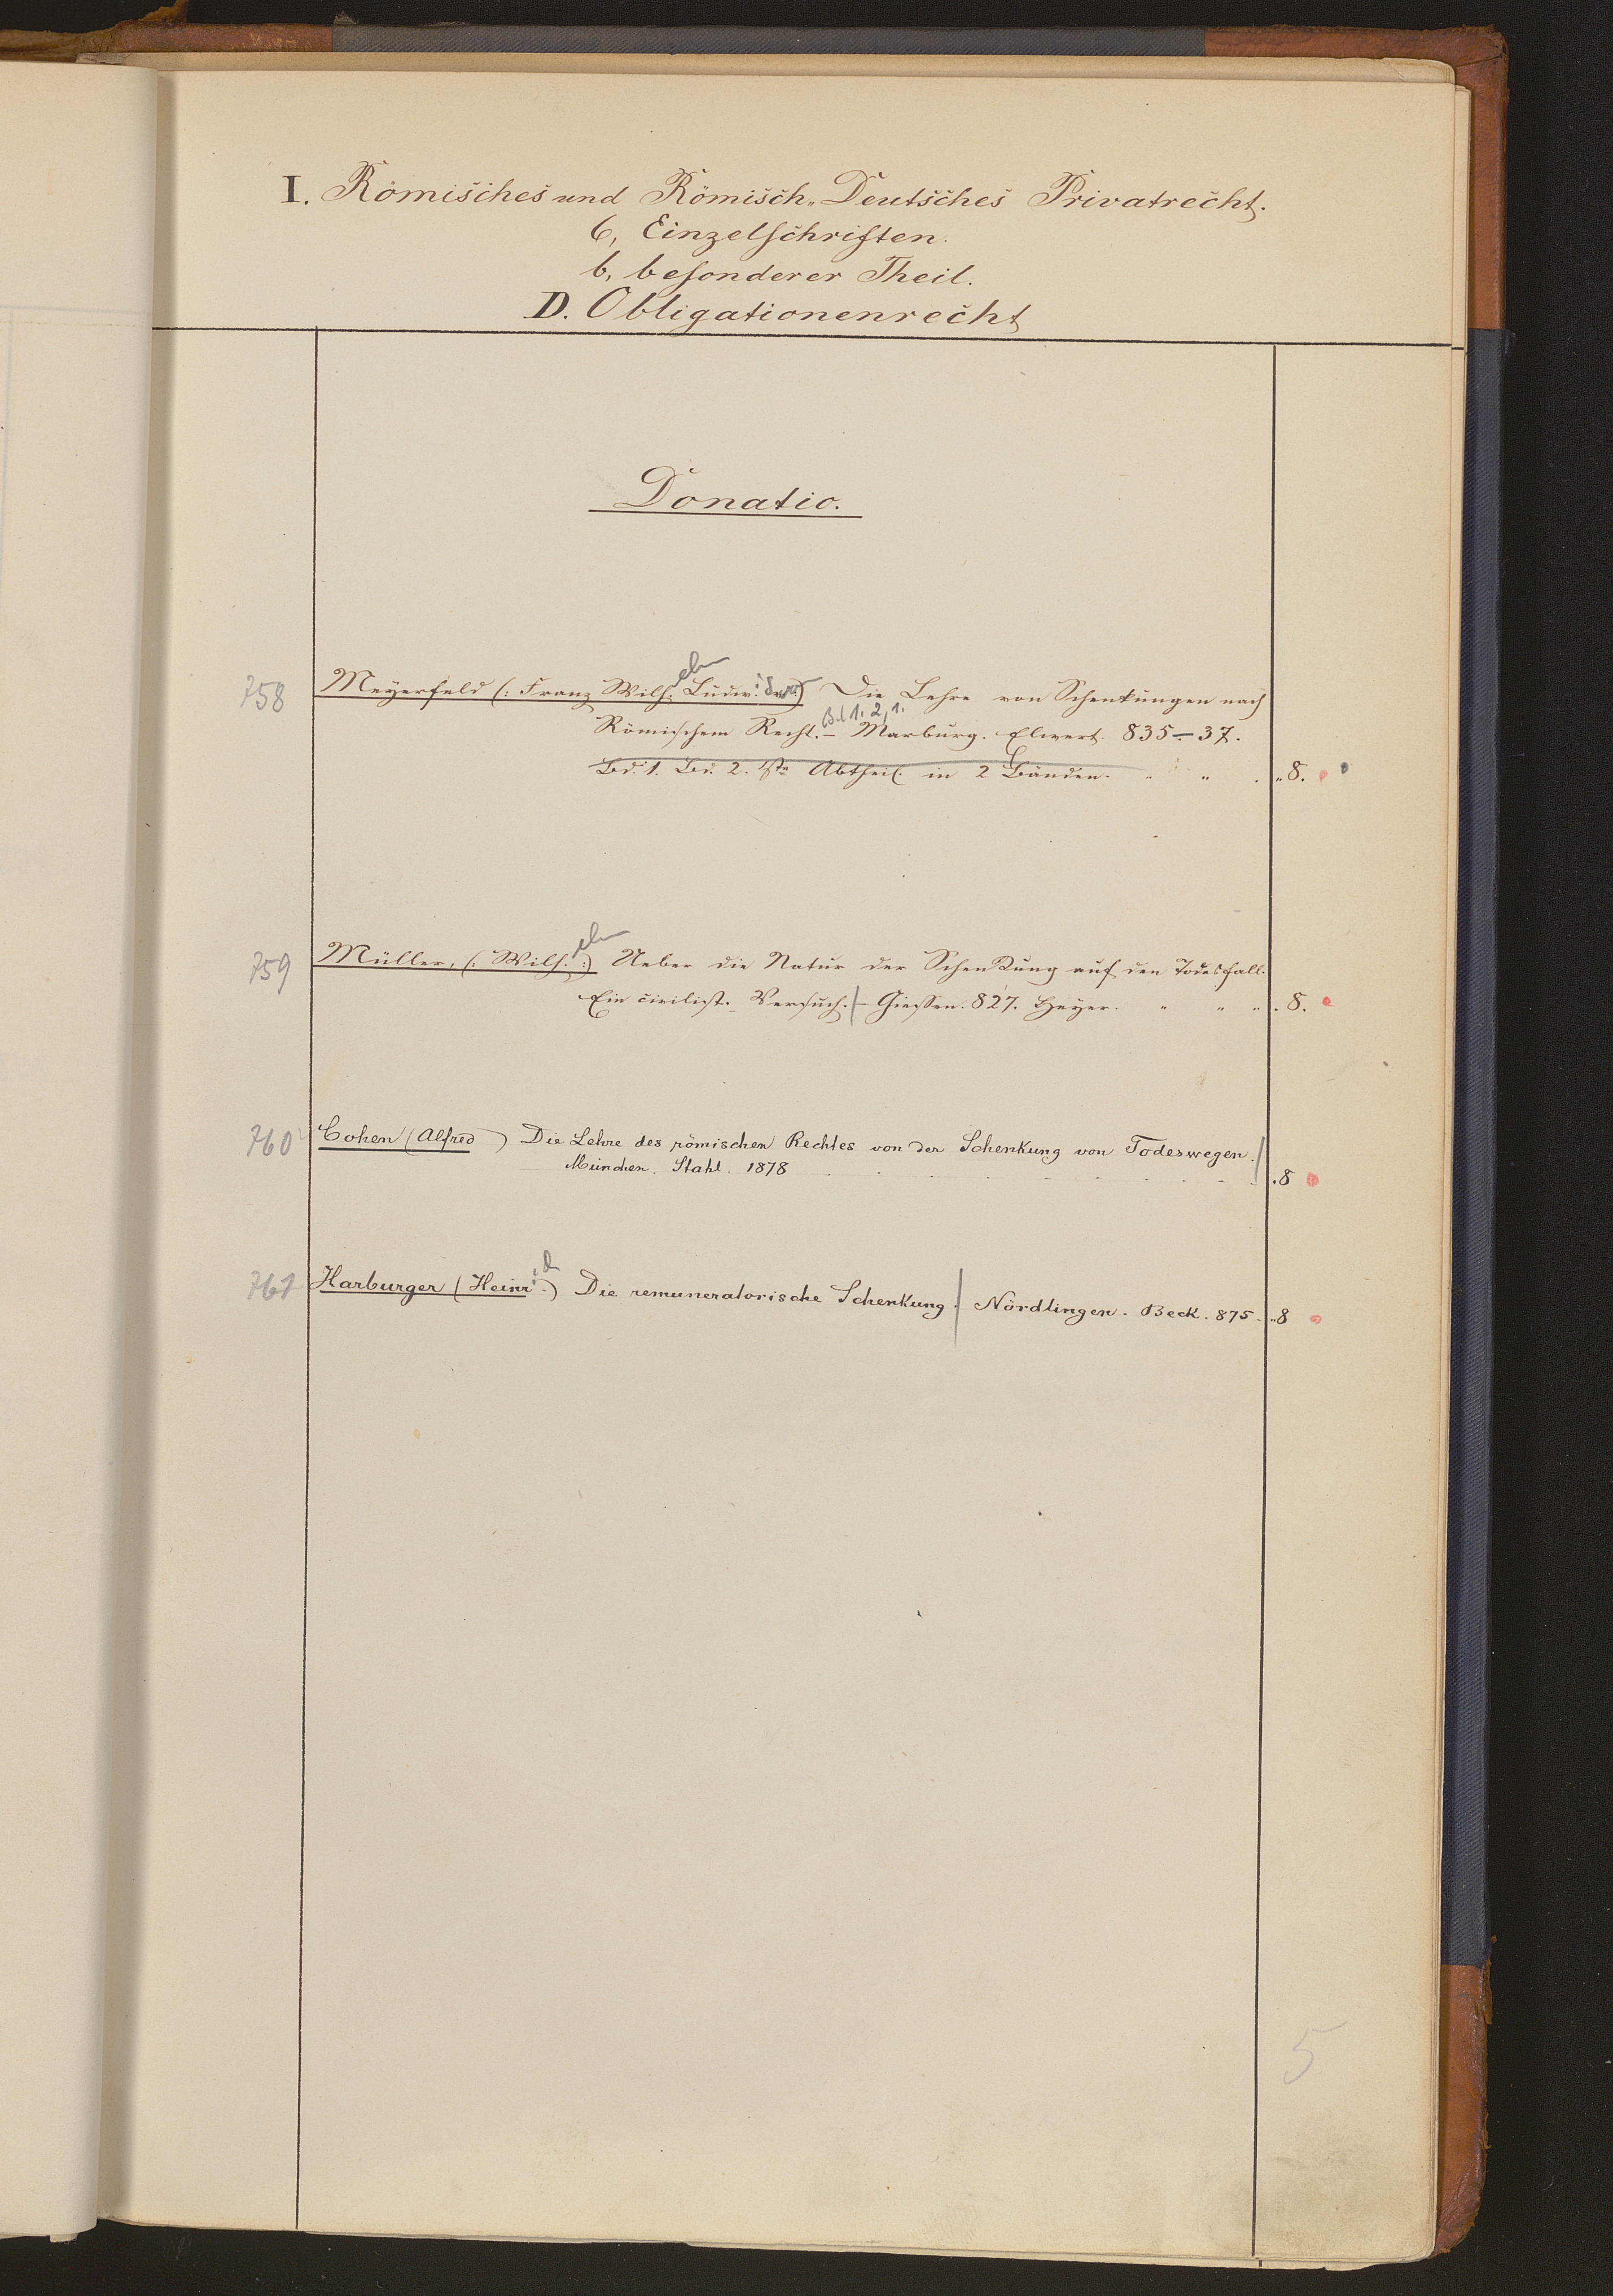 I. Römisches und Römisch-Deutsches Privatrecht.
6, Einzelschriften.
b, besonderer Theil.
D. Obligationenrecht
Donatio.
758 Meyerfeld (: Franz Wilh.elm Ludw.:) Die Lehre von Schenkungen nach
Römischem Recht. – Bd 1. 2,1. Marburg. Elwert. 835–37.
Bd. 1. Bd. 2. 1ste Abtheil. in 2 Bänden. " 8.
759 Müller, (: Wilh.elm :) Ueber die Natur der Schenkung auf den Todesfall.
Ein civilist. Versuch. – Giessen. 827. Heyer. " " " 8.
760 Cohen (Alfred) Die Lehre des römischen Rechtes von der Schenkung von Todeswegen.
München. Stahl. 1878 . 8
761 Harburger (Heinr.) Die remuneratorische Schenkung. Nördlingen. Beck. 875. " 8
5